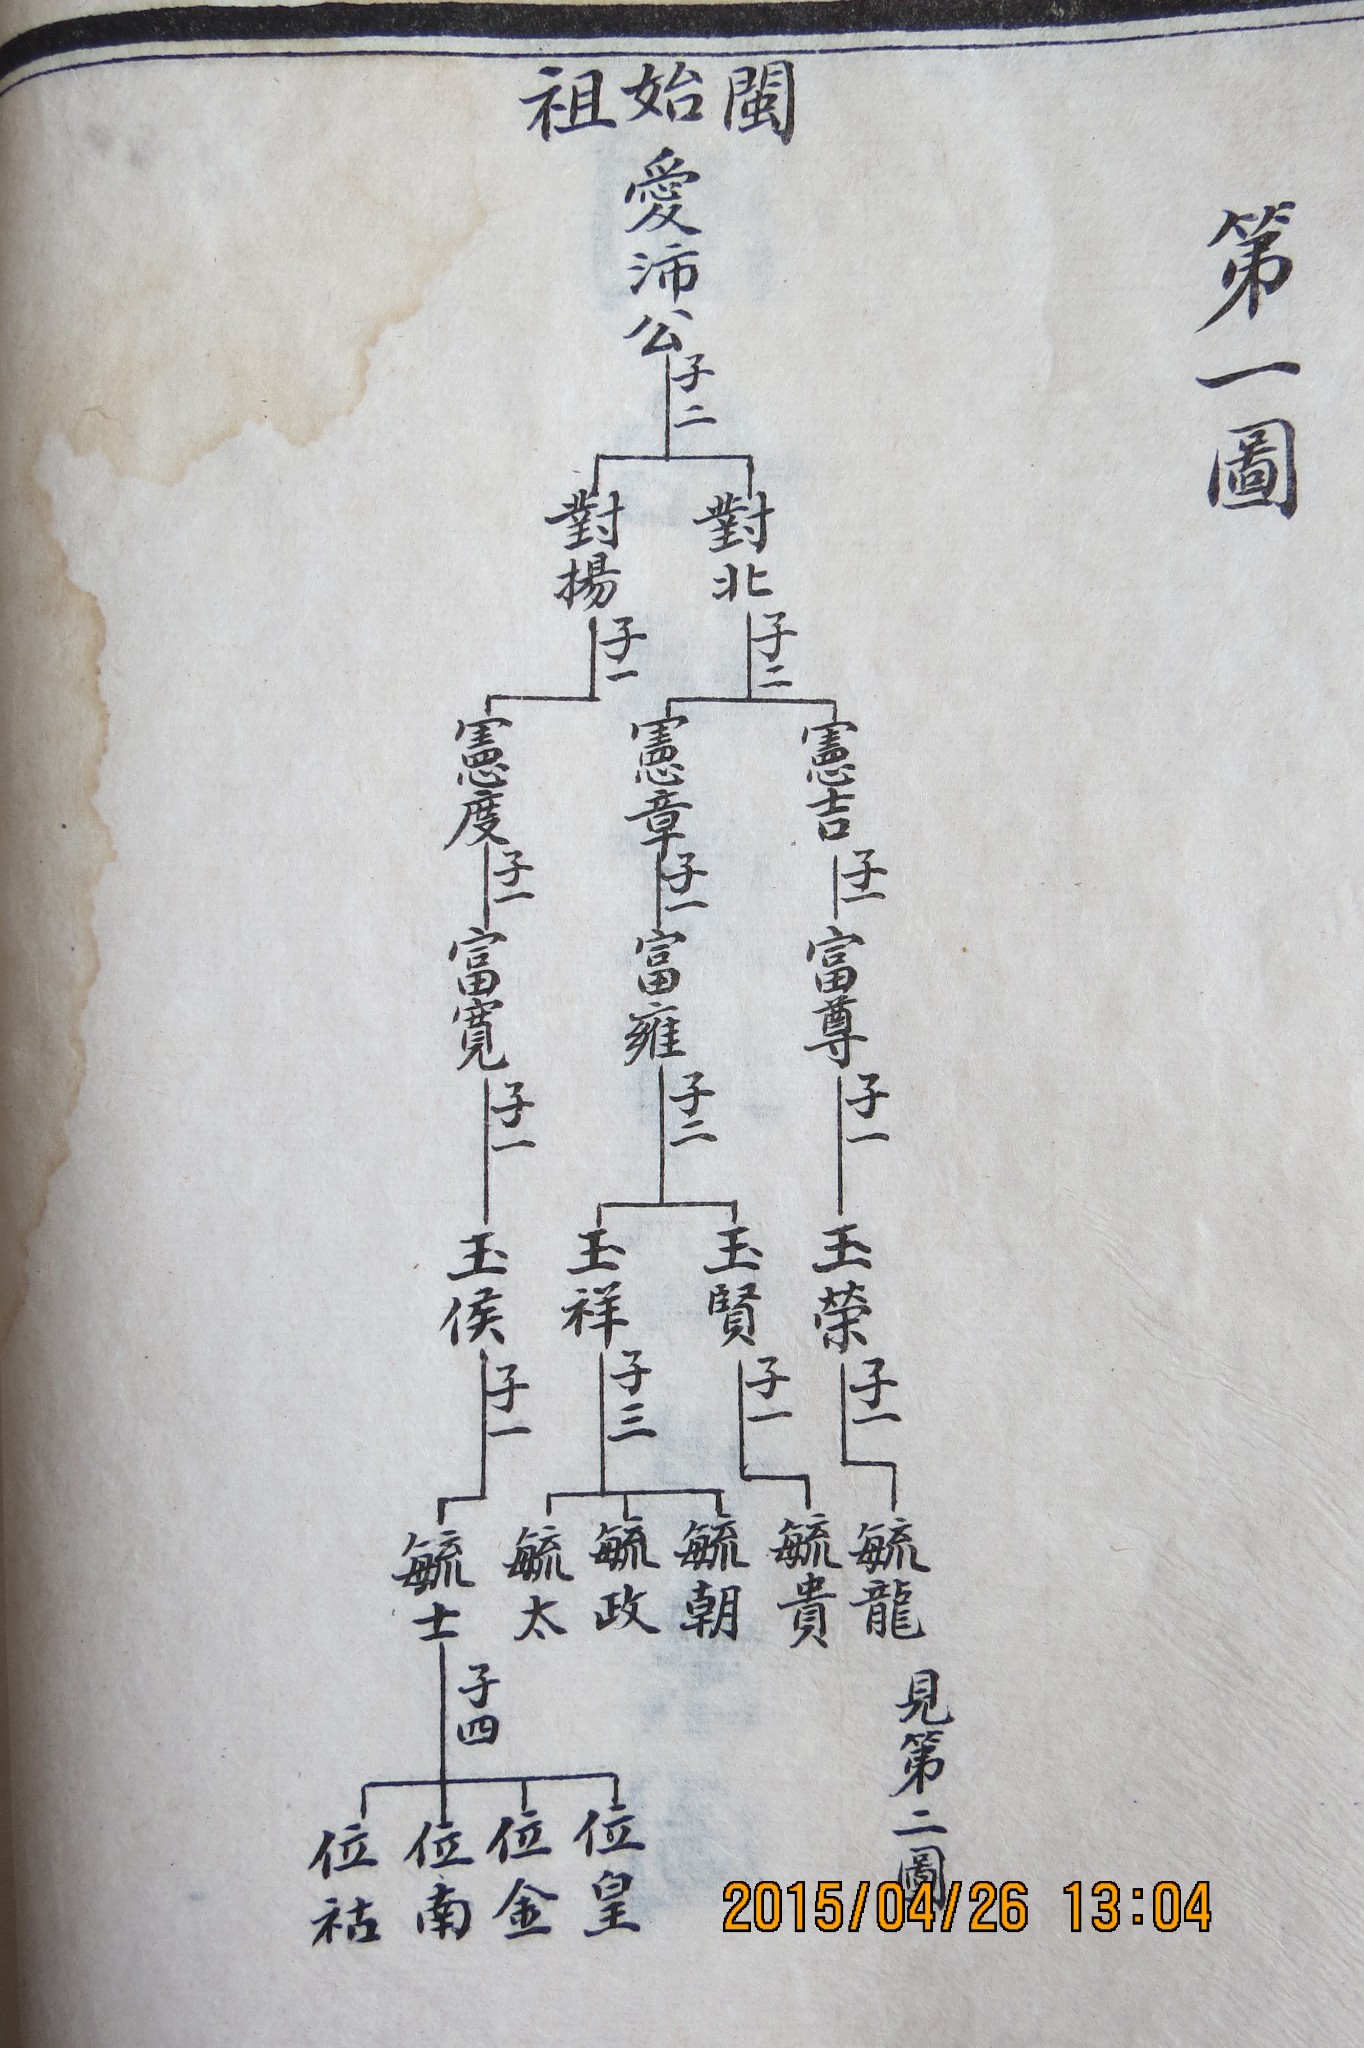 第一圖
閩始祖
愛沛公
子二
對北
對揚
子二
子一
憲吉
憲章
憲度
子一
子一
子一
富尊
富雍
富寬
子一
子二
子一
玉榮
玉賢
玉祥
玉侯
子一
子一
子三
子一
毓龍
毓貴
毓朝
毓政
毓太
毓士
見第二圖
子四
位皇
位金
位南
位祜
2015/04/26 13:04